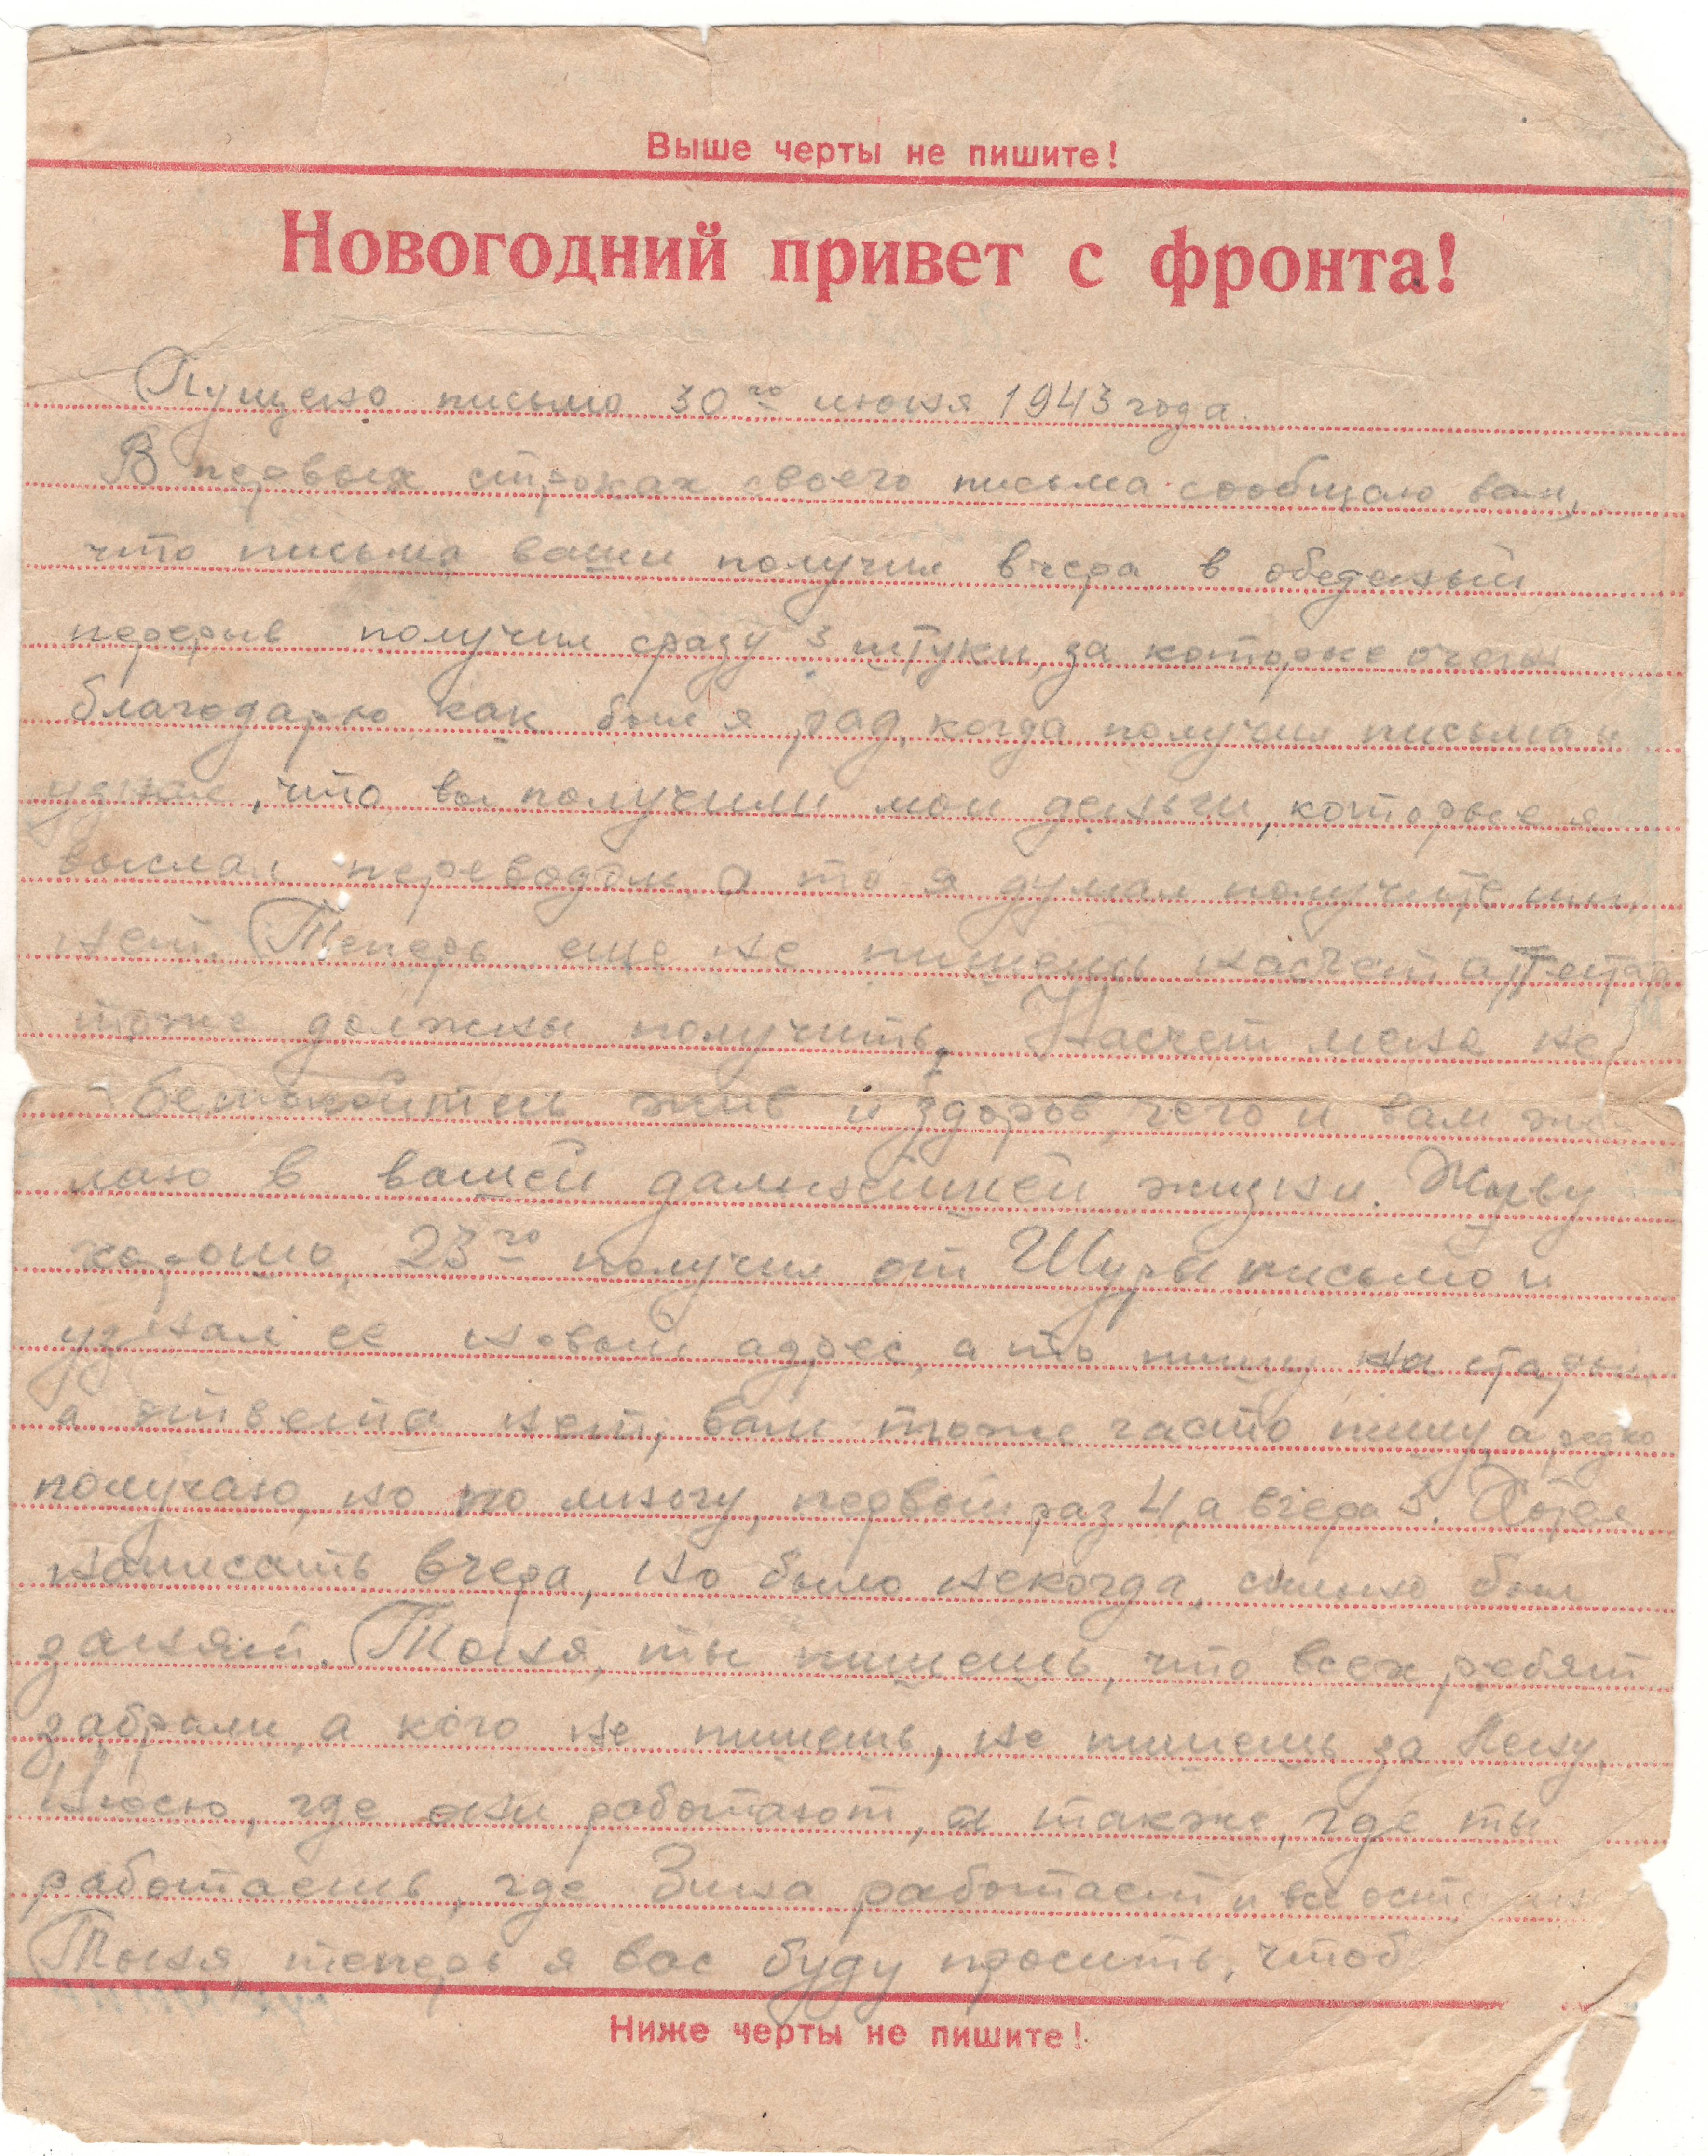 Выше черты не пишите!
Новогодний привет с фронта!
Пущено письмо 30го июня 1943 года.
В первых строках своего письма сообщаю вам,
что письма ваши получил вчера в обеденый
перерыв получил сразу 3 штуки, за которые очень
благодарю, как был я рад, когда получил письма и
узнал, что вы получили мои деньги, которые я
выслал переводом, а то я думал получите или
нет. Теперь еще не пишете насчет
тоже должны получить. Насчет меня не
беспокойтесь жив и здоров, чего и вам же
лаю в вашей дальнейшей жизни. Живу
хорошо, 23го получил от Шуры письмо и
узнал ее новый адрес, а то пишу на старый
а ответа нет, вам тоже часто пишу, а редко
получаю, но по многу, первый раз 4, а вчера 3. Хотел
написать вчера, но было некогда, сильно был
занят. Тоня, ты пишешь, что всех ребят
забрали, а кого не пишешь, не пишешь за Лену,
Нюсю, где они работают, а также, где ты
работаешь, где Зина работает и все
Тоня, теперь я вас буду просить, чтоб
Ниже черты не пишите!